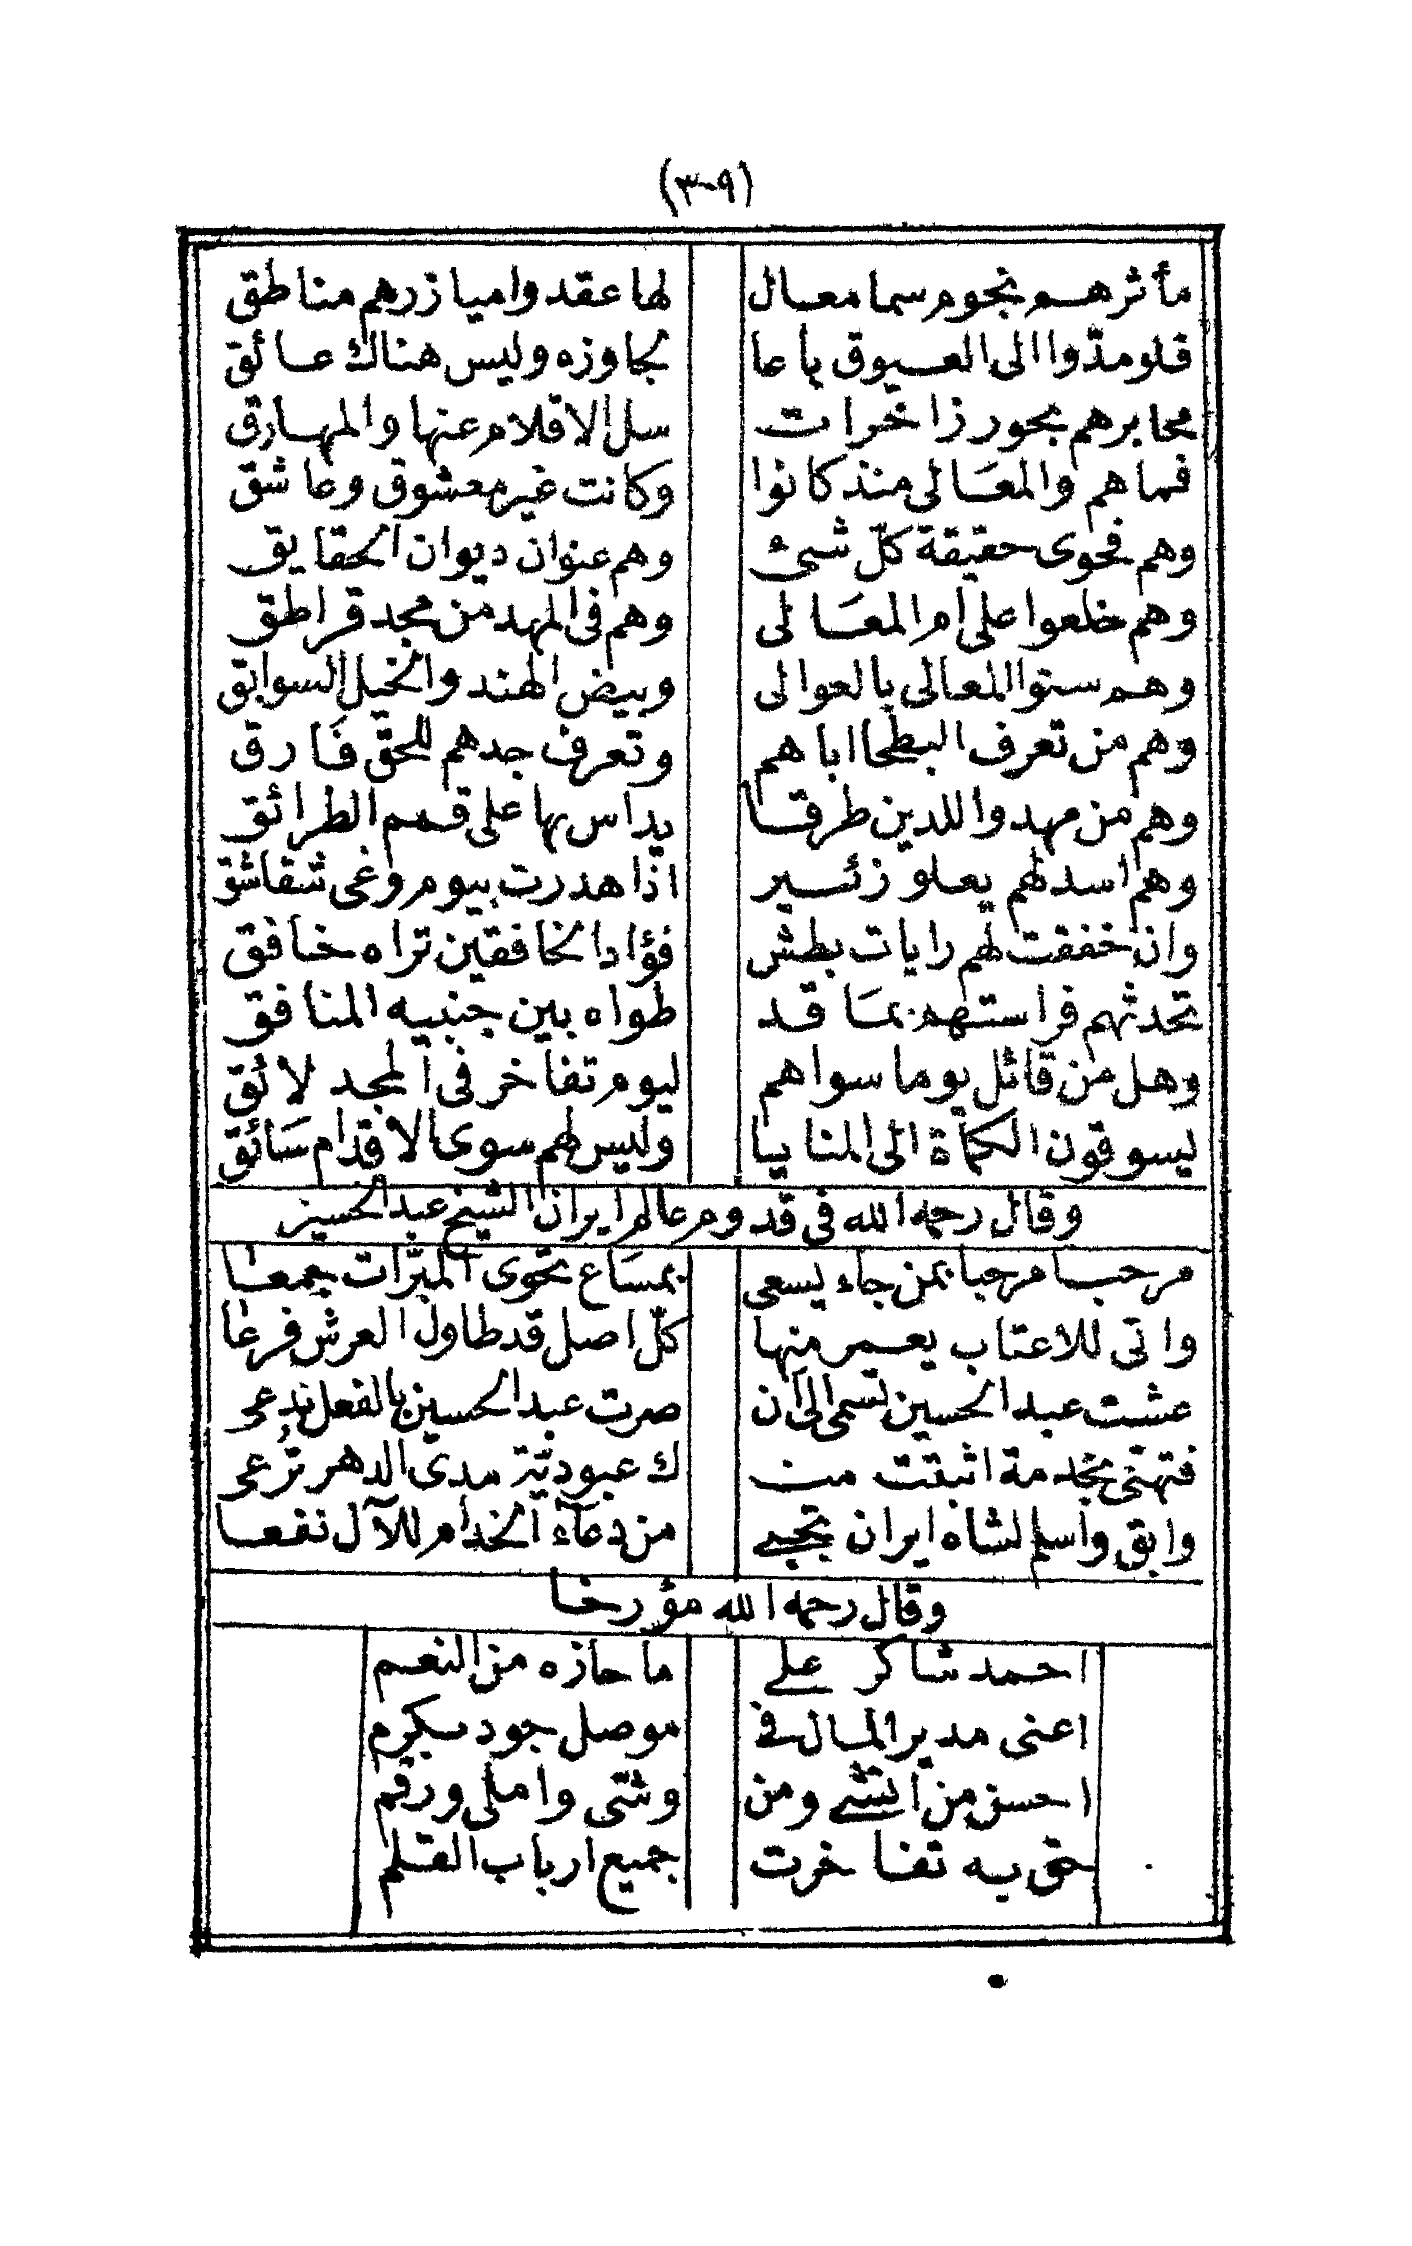 (٣٠٩)
مأثرهم نجوم سما معال لها عقدوا ميازرهم مناطق
فلو مدّوا الى العيوق باعا تجاوزه وليس هناك عائق
محابرهم بحور زاخرات سل الاقلام عنها والمهارق
فما هم والمعالى منذ كانوا وكانت غير معشوق وعاشق
وهم فحوى حقيقة كلّ شئ وهم عنوان ديوان الحقايق
وهم خلعوا على ام المعالى وهم فى المهد من مجد قراطق
وهم سنوا المعالى بالعوالى وبيض الهند والخيل السوابق
وهم من تعرف البطحا اباهم وتعرف جدهم للحق فارق
وهم من مهدوا للدين طرقا يداس بها على قمم الطرائق
وهم اسد لهم يعلو زئير اذا هدرت بيوم وغى شقاشق
وان خفقت لهم رايات بطش فؤاد الخافقين تراه خافق
تحدثهم فراستهم بما قد طواه بين جنبيه المنافق
وهل من قائل يوما سواهم ليوم تفاخر فى المجد لائق
يسوقون الكماة الى المنايا وليس لهم سوى الاقدام سائق
وقال رحمه الله فى قدوم عالم ايران الشيخ عبد الحسين
مرحبا مرحبا بمن جاء يسعى بمساع تحوى المبرّات جمعا
واتى للاعتاب يعمر منها كلّ اصل قد طاول العرش فرعا
عشت عبد الحسين تسمى الى ان صرت عبد الحسين بالفعل تدعى
فتهنى بخدمة اثبتت منـ ـك عبوديّة مدى الدهر ترعى
وابق واسلم لشاه ايران تجبى من دعاء الخدام للآل نفعا
وقال رحمه الله مؤرخا
احمد شاكر على ما حازه من النعم
اعنى مدير المال فى موصل جود بكرم
احسن من انشى ومن وشى واملى ورقم
حتى به تفاخرت جميع ارباب القلم